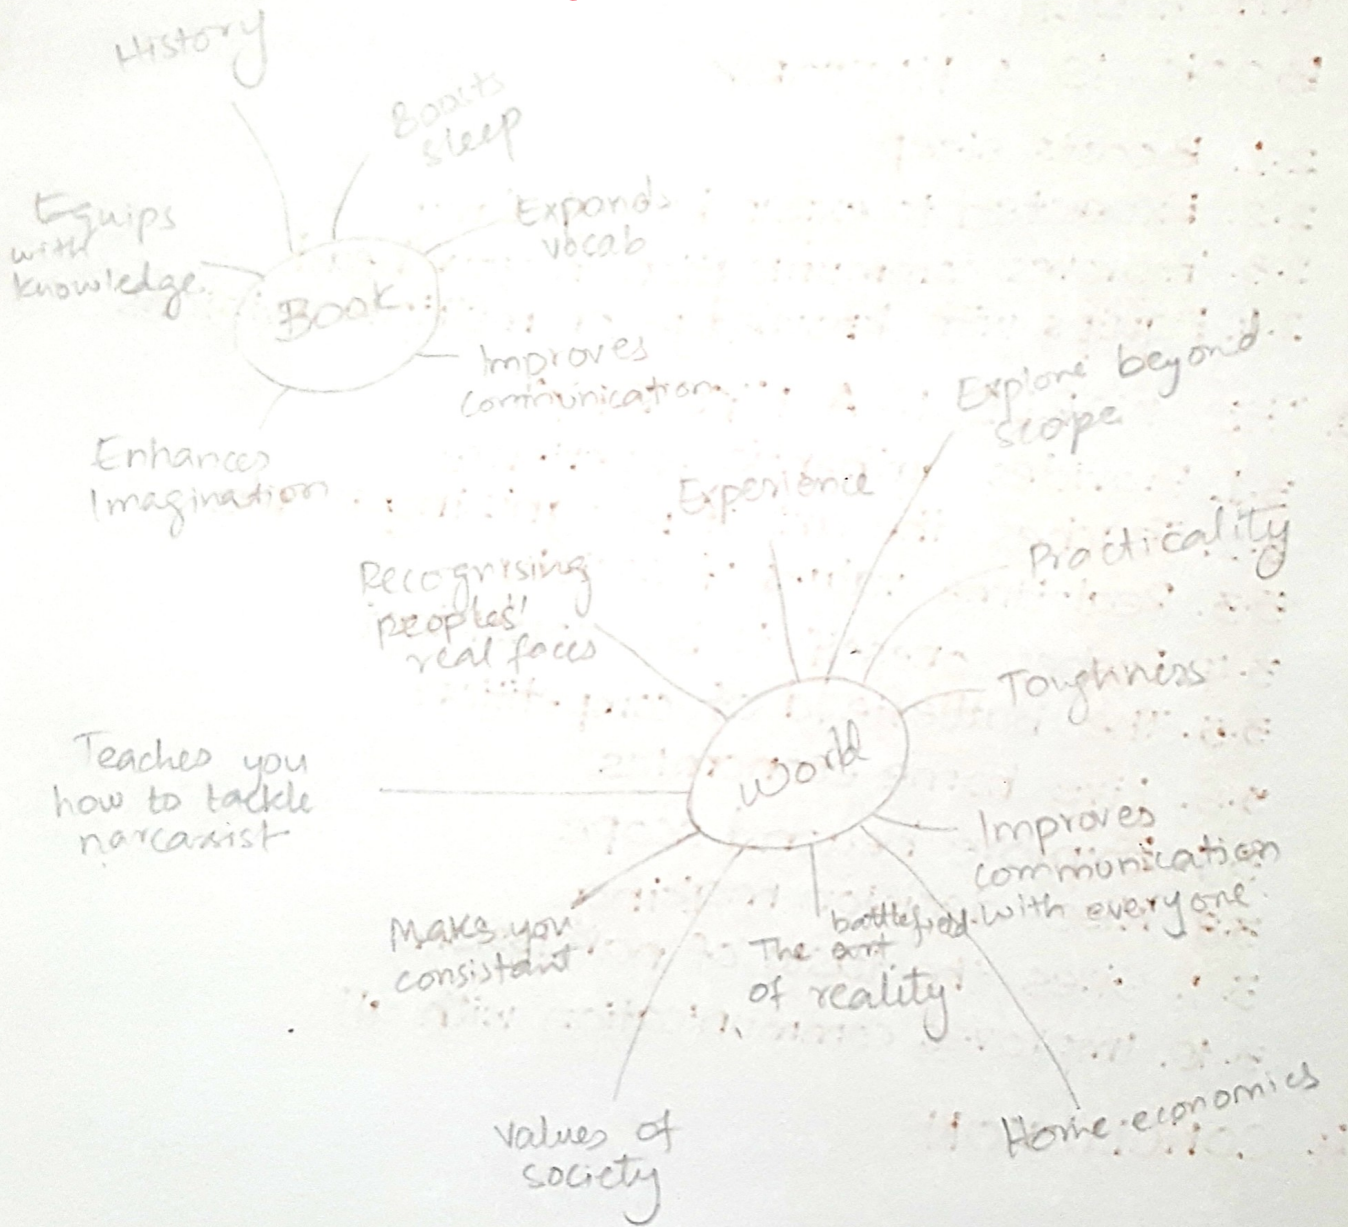 History
Boosts
sleep
Equips
with
knowledge.
Expands
vocab
Book
Improves
communication
Enhances
Imagination
Explore beyond
scope
Experience
Practicality
Recognising
peoples'
real faces
Toughness
World
Teaches you
how to tackle
narcasist
Improves
communication
with everyone
Makes you
consistant
battlefield
The art
of reality
Home economics
values of
society